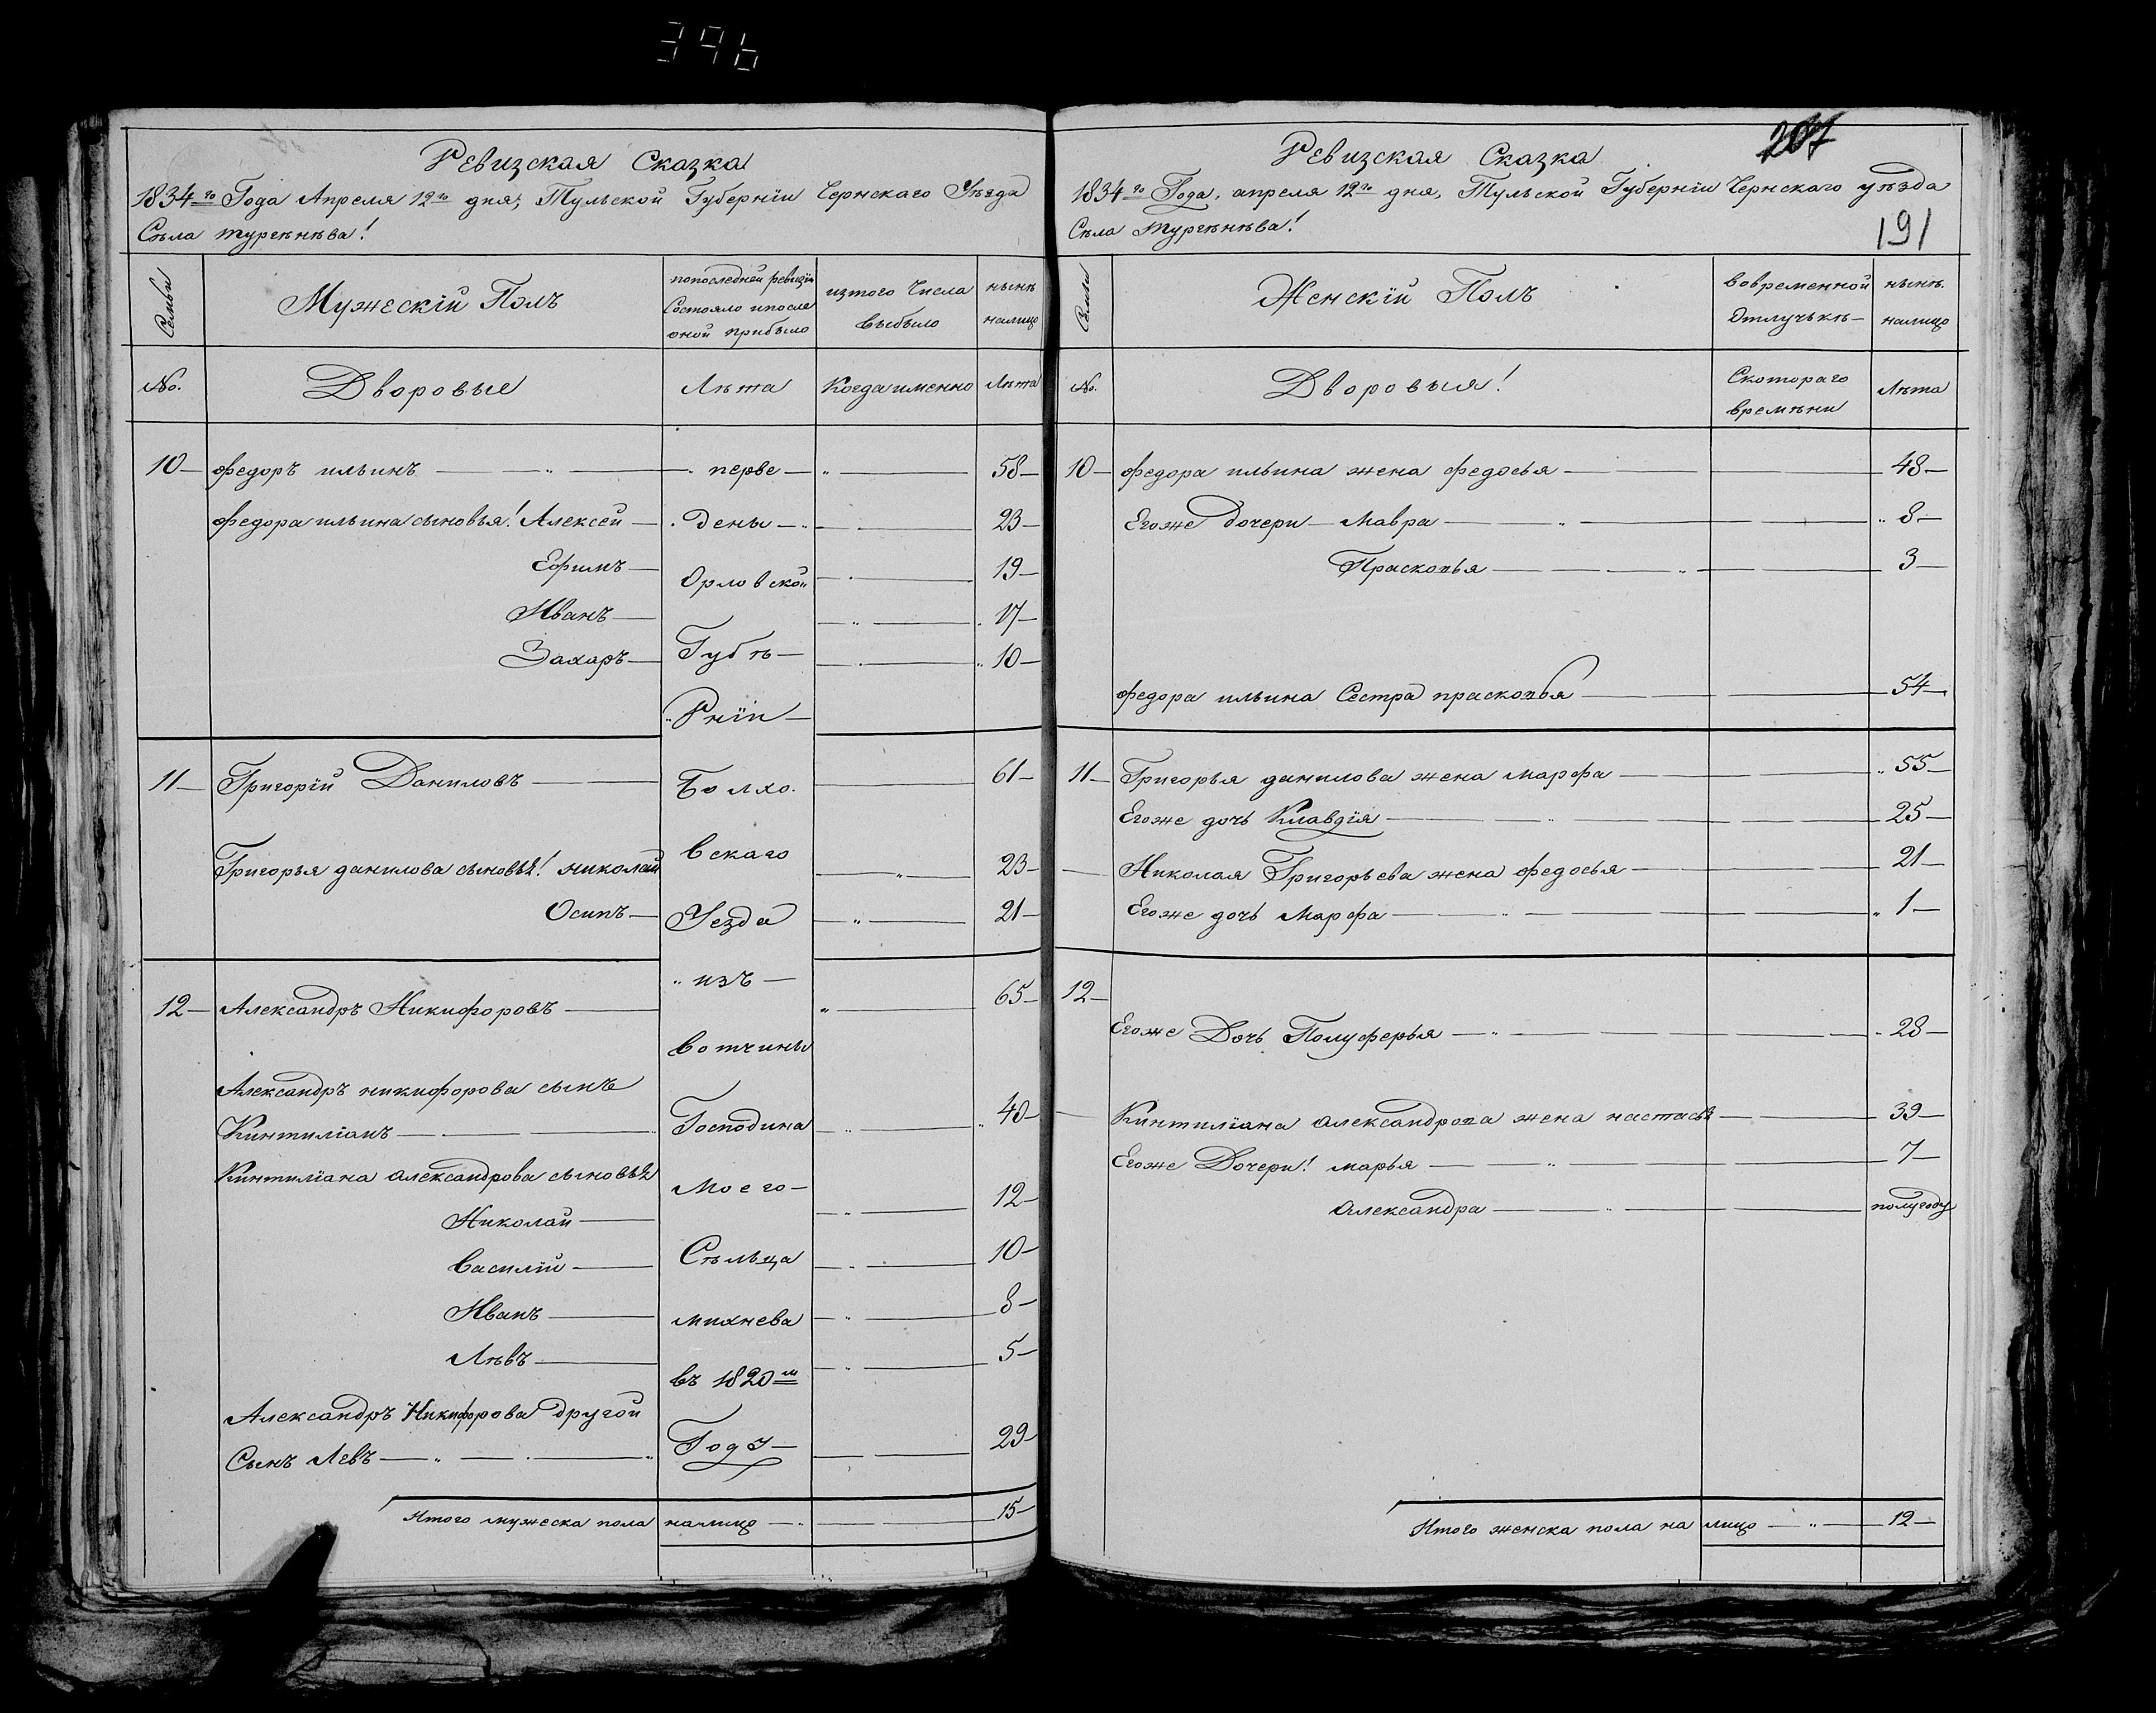 396
Ревизская Сказка
1834го Года Апреля 12го дня, Тульской Губернïи Чернскаго Уѣзда
Сѣла тургѣнѣва!
Семьи
Мужескïй Полъ
попоследней ревизïи
Состояло ипосле
оной прибыло
изтого Числа
выбыло
нынѣ
налицо
No.
Дворовые
Лѣта
Когда именно
Лѣта
10 федоръ ильинъ перве 58
федора ильина сыновья! Алексей дены 23
Ефимъ Орловской 19
Иванъ 17
Захаръ Губѣ 10
Рнïи
11 Григорïй Даниловъ Болхо. 61
Григорья данилова сыновья! николай вскаго 23
Осипъ Уезда 21
изъ
12 Александръ Никифоровъ 65
вотчины
Александръ никифорова сынъ
Кинтилïанъ Господина 40
Кинтилïана александрова сыновья
Николай Моего 12
Василïй Сѣльца 10
Иванъ михнева 8
Лѣвъ 5
въ 1820м
Александръ Никифорова другой
Сынъ Левъ Году 29
Итого мужеска пола налицо 15
207
Ревизская Сказка
1834го Года, апреля 12го дня, Тульской Губернïи Чернскаго уѣзда
Сѣла Тургѣнѣва!
191
Семьи
Женскïй Полъ
вовременной
Отлучькѣ
нынѣ.
налицо
No.
Дворовыя!
Скотораго
времѣни
Лѣта
10 федора ильина жена федосья 48
Егоже дочери Мавра 8
Прасковья 3
федора ильина Сестра прасковья 54
11 Григорья данилова жена марфа 55
Егоже дочь Клавдïя 25
Николая Григорьева жена федосья 21
Егоже дочь Марфа 1
12
Егоже Дочь Полуферья 28
Кинтилïана александрова жена настасья 39
Егоже Дочери! марья 7
александра полугоду
Итого женска пола на лицо 12